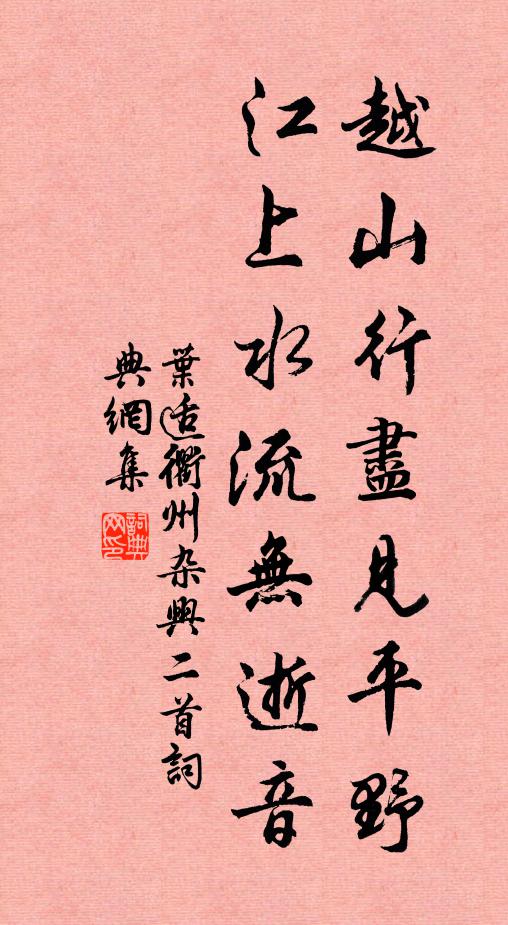 越山行盡見平野
江上水流無逝音
葉适衢州杂興二首詞
典網集
詞典網印